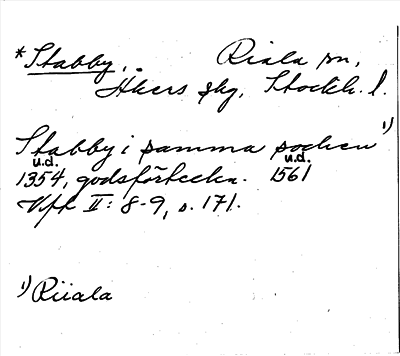 *Stabby, Riala sn,
Åkers skg, Stockh. l.
Stabby i samma socken 1)
u.d. u.d.
1354, godsförteckn. 1561
Vfr II: 8-9, s. 171.
1) Riiala